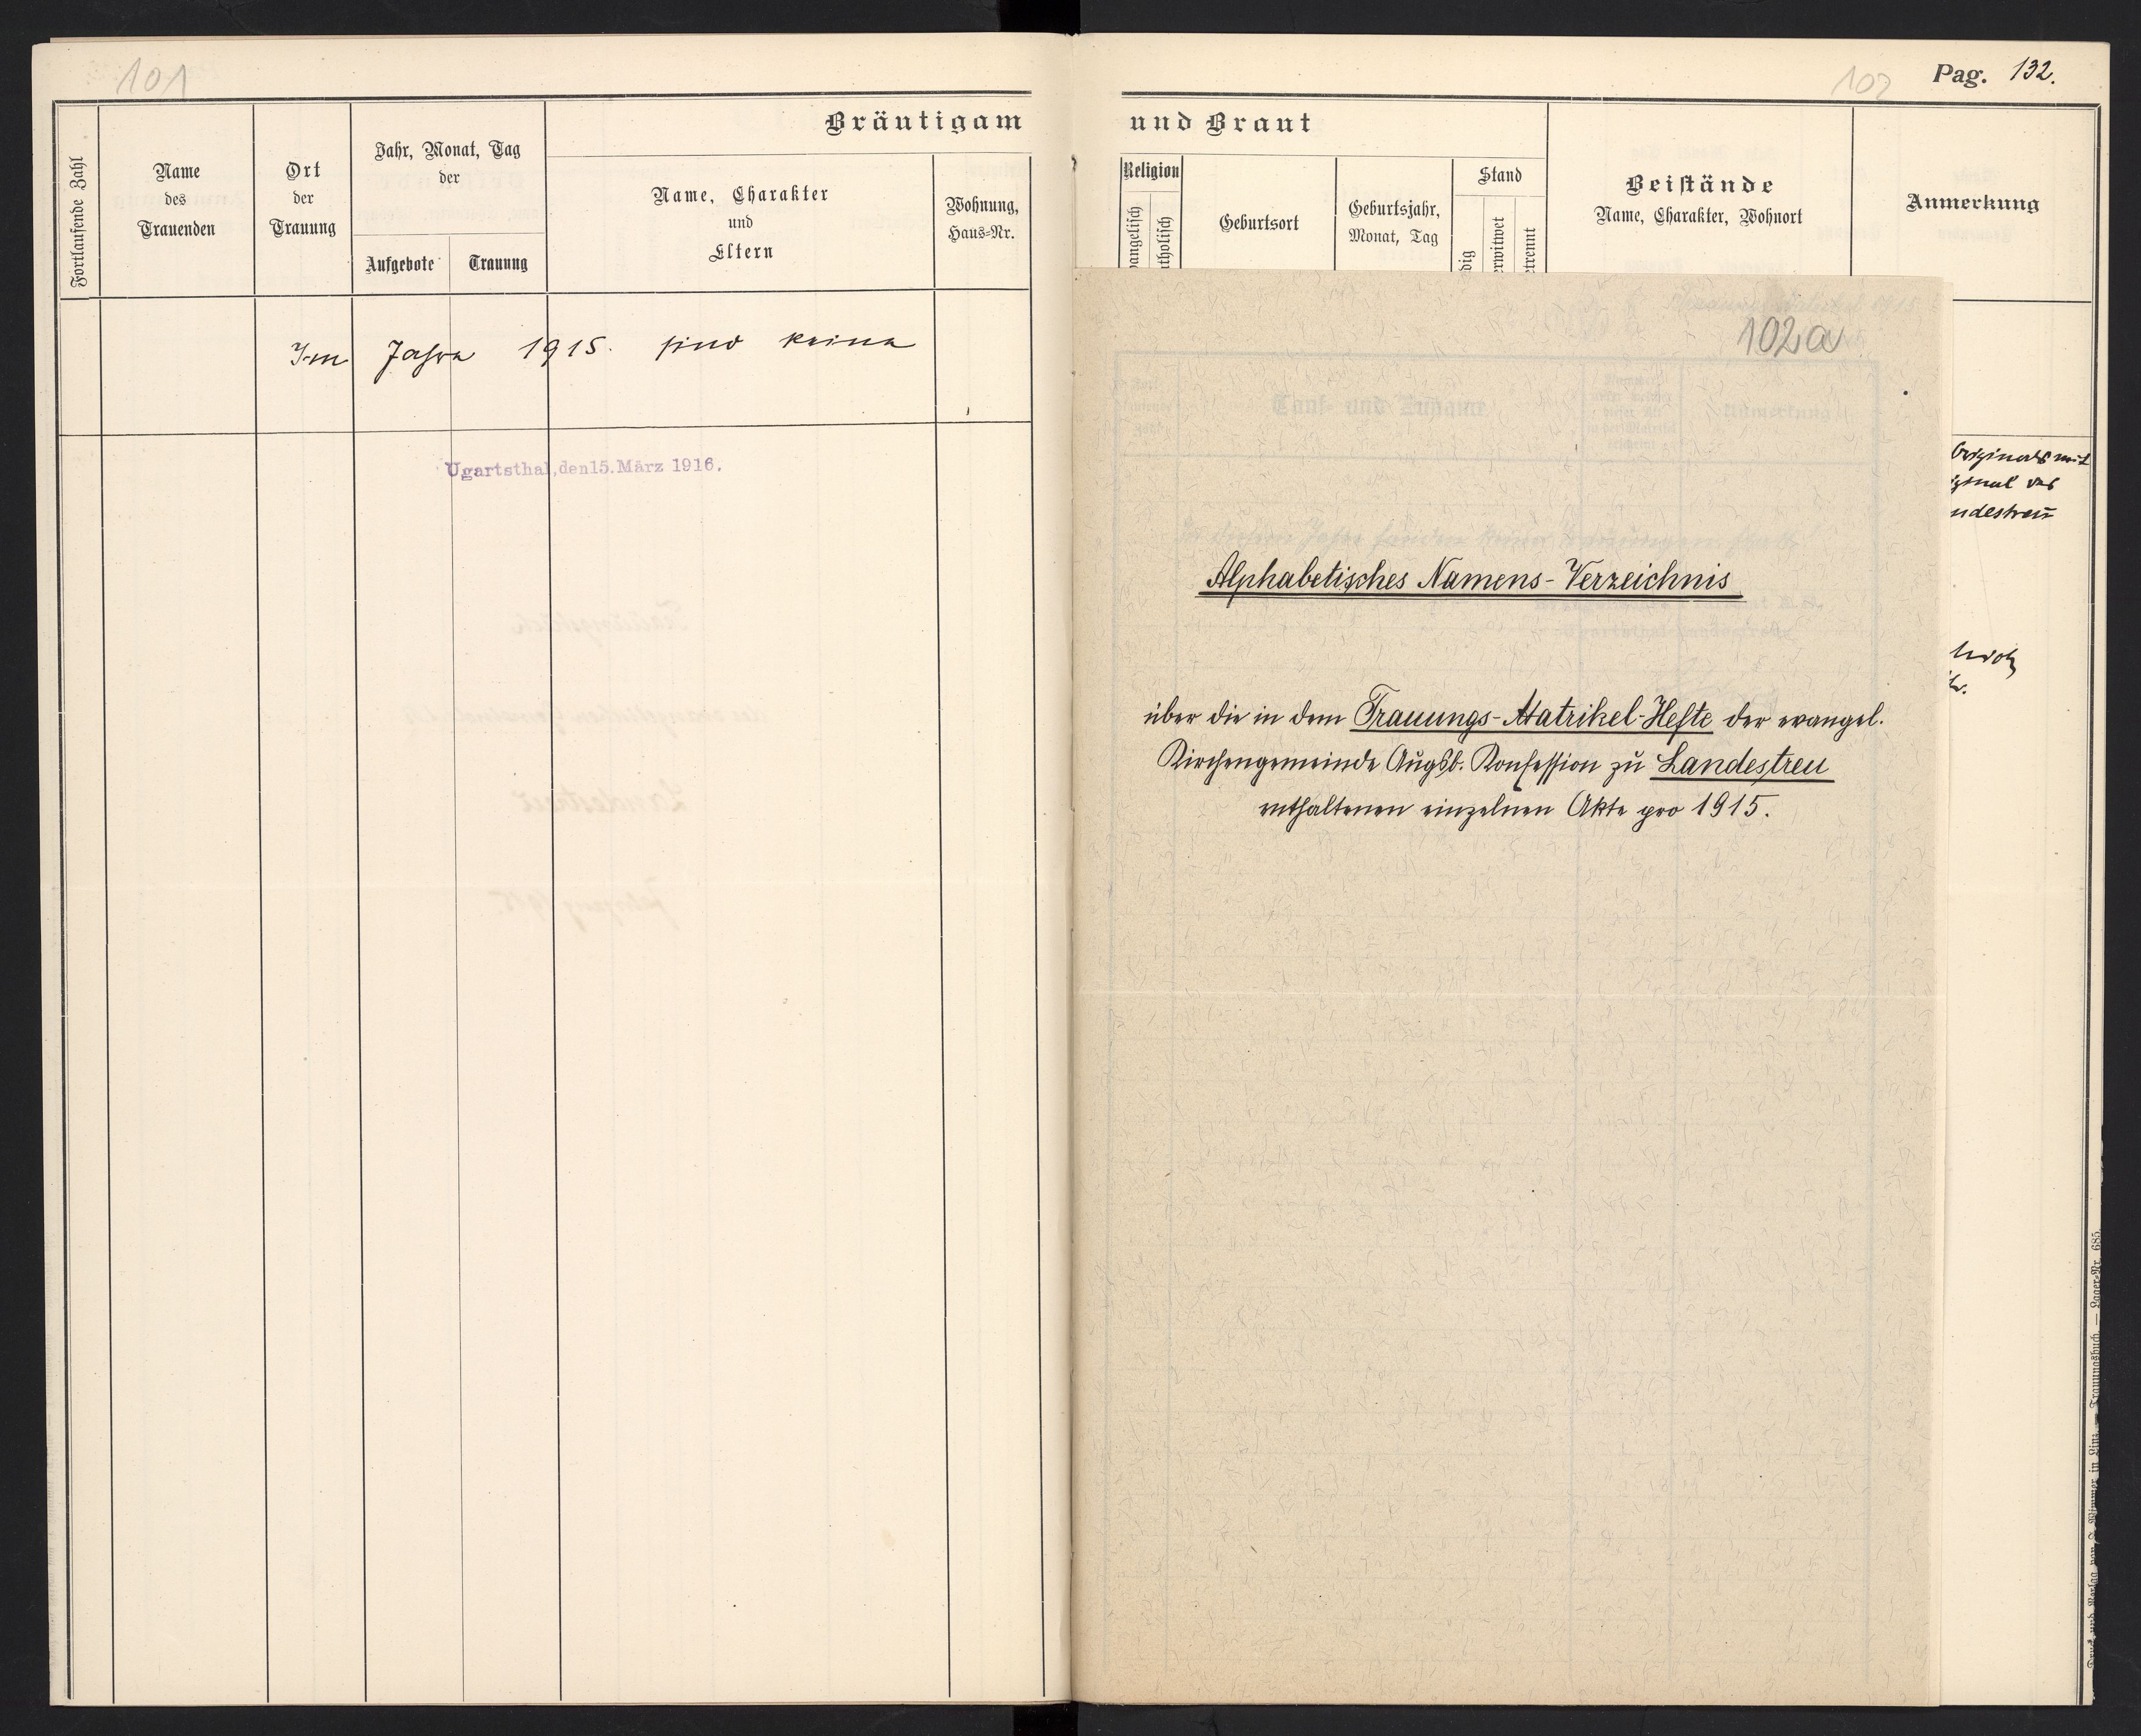 101
Bräutigam
Fortlaufende Zahl
Name
des
Trauenden
Ort
der
Trauung
Jahr, Monat, Tag
der
Aufgebote
Trauung
Name, Charakter
und
Eltern
Wohnung,
Haus-Nr.
Im Jahre 1915. sind keine
Ugartsthal, den 15. März 1916.
102
Pag. 132.
und Braut
Religion
angelisch
tholisch
Geburtsort
Geburtsjahr,
Monat, Tag
Stand
dig
erwitwet
etrennt
Beistände
Name, Charakter, Wohnort
Anmerkung
102a
Alphabetisches Namens-Verzeichnis
über die in dem Trauungs-Matrikel-Hefte der evangel.
Kirchengemeinde Augsb. Konfession zu Landestreu
enthaltenen einzelnen Akte pro 1915.
Originals mit
iginal des
ndestreu
Druck und Verlag von J. Wimmer in Linz. — Trauungsbuch. — Lager-Nr. 685.